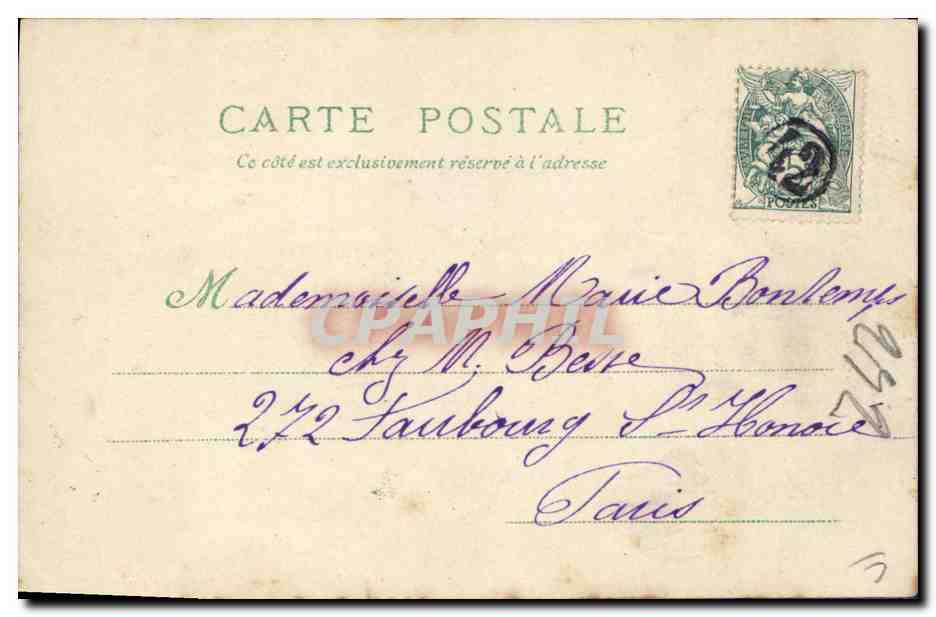 CARTE POSTALE
Ce côté est exclusivement réservé à l'adresse
5
POSTES
42
Mademoiselle Marie Bontemps
CPAPHIL
chez M. Besse
272 Faubourg St Honoré
Paris